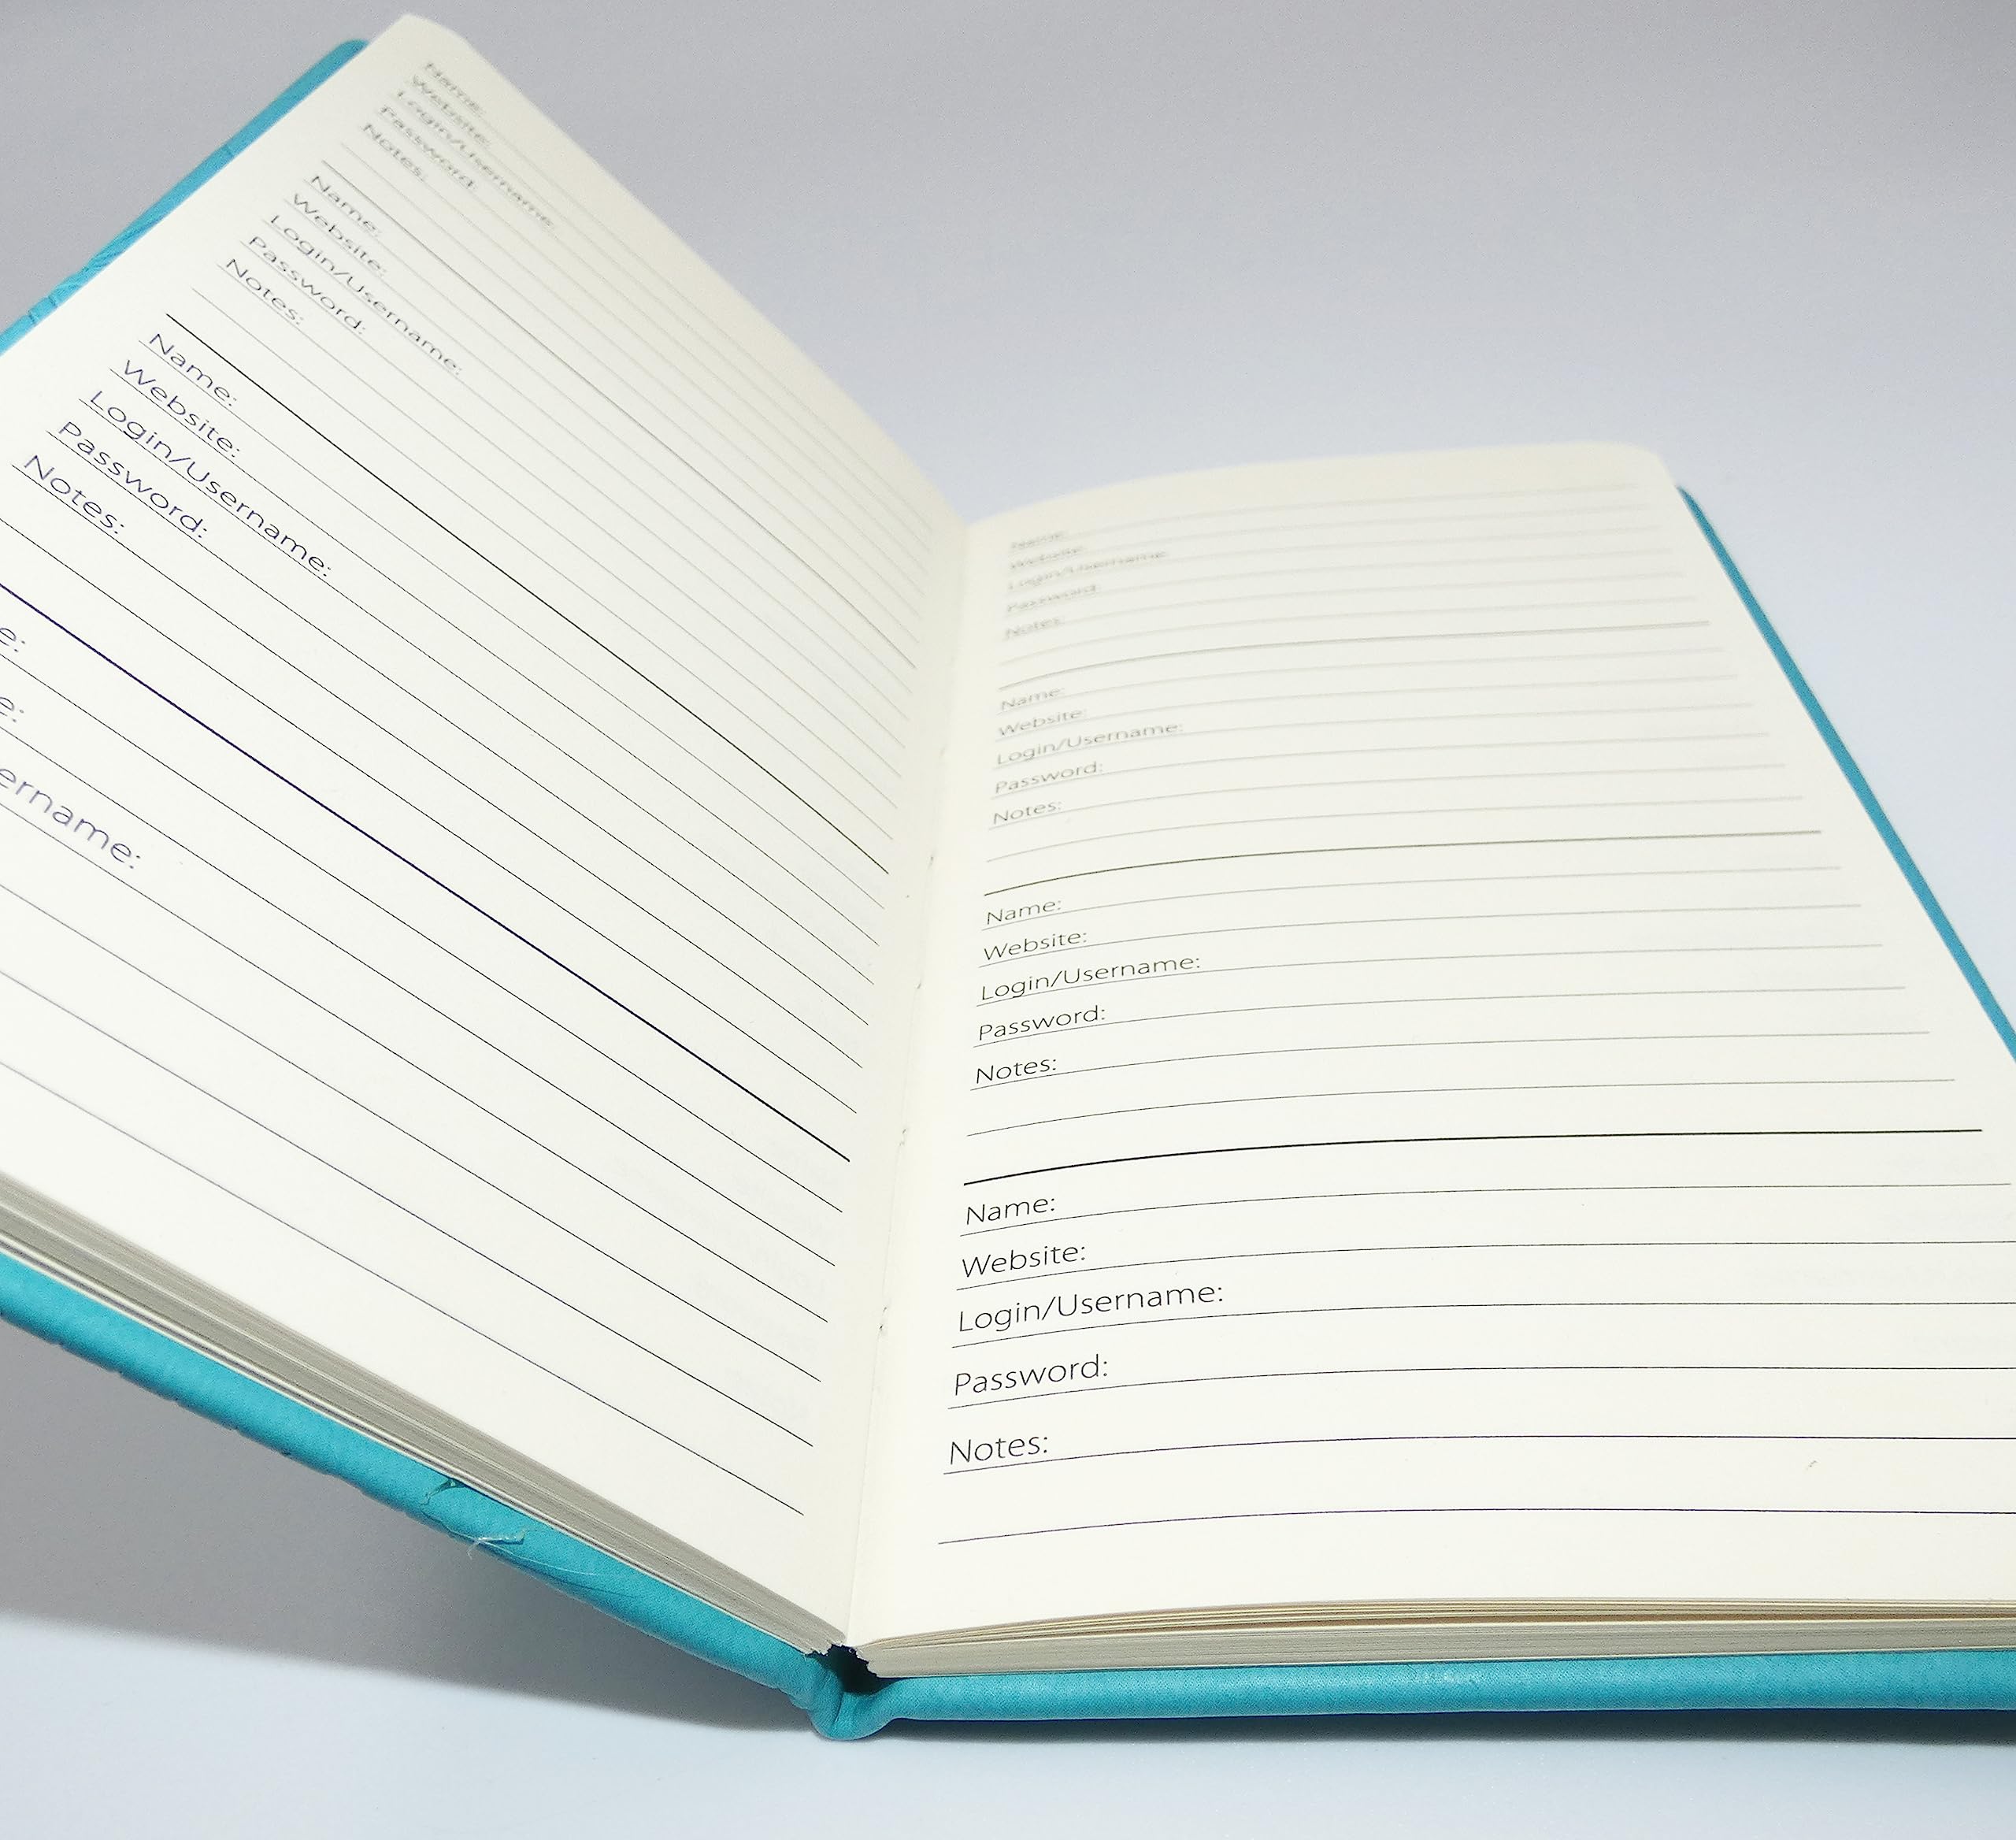 Name:
Website:
Login/Username:
Password:
Notes:
Name:
Website:
Login/Username:
Password:
Notes:
Name:
Website:
Login/Username:
Password:
Notes:
e:
e:
ername:
Name:
Website:
Login/Username:
Password:
Notes:
Name:
Website:
Login/Username:
Password:
Notes:
Name:
Website:
Login/Username:
Password:
Notes:
Name:
Website:
Login/Username:
Password:
Notes: